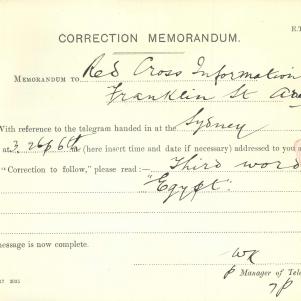 E.T
CORRECTION MEMORANDUM.
MEMORANDUM TO Red Cross Information
Franklin St
With reference to the telegram handed in at the Sydney
at 3.26p 6th me (here insert time and date if necessary) addressed to you a
"Correction to follow," please read:— Third word
"Egypt".
message is now complete.
p Manager of Tele